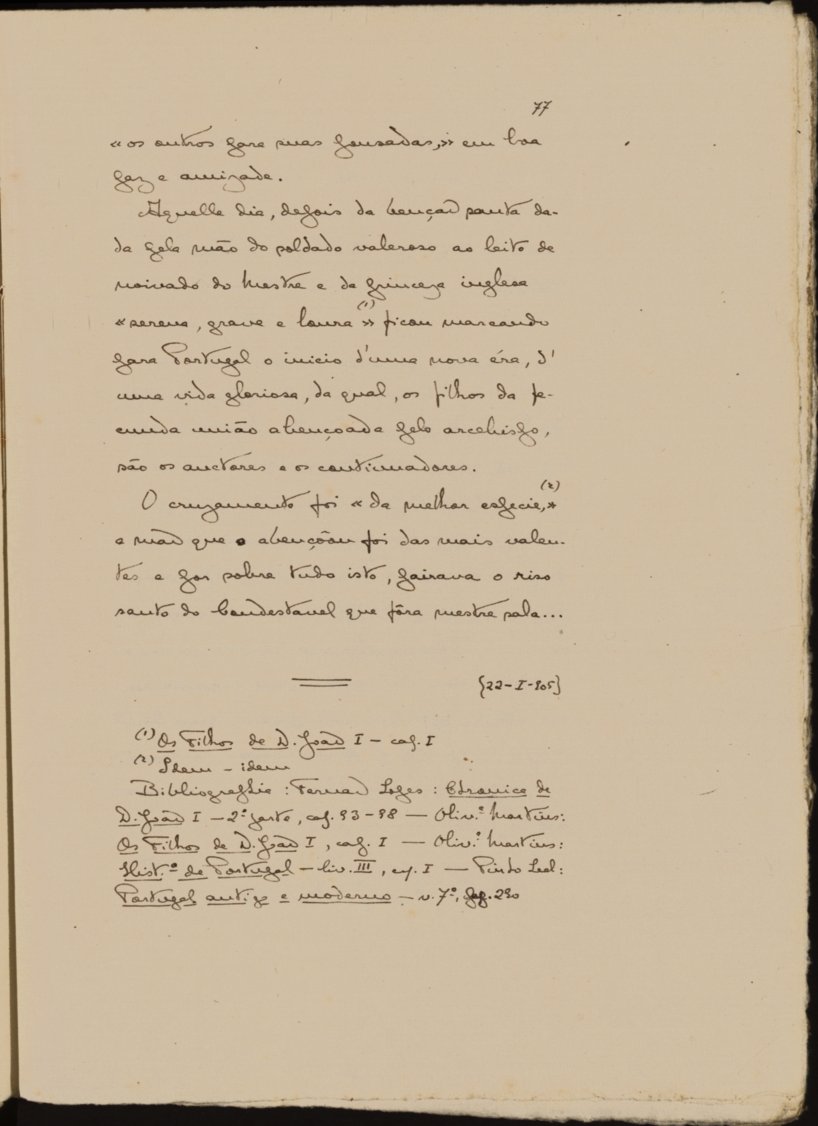 77
« os outros para suas pousadas,» em boa
paz e amizade.
Aquelle dia, depois da benção santa da-
da pela mão do soldado valeroso ao leito de
noivado do Mestre e da princeza inglesa
« serena, grave e loura (1) » ficou marcando
para Portugal o inicio d'uma nova éra, d'
uma vida gloriosa, da qual, os filhos da fe-
cunda união abençoada pelo arcebispo,
são os auctores e os continuadores.
O cruzamento foi « da melhor especie, (2) »
a mão que o abençôou foi das mais valen-
tes e por sobre tudo isto, pairava o riso
santo do Condestavel que fôra mestre sala...
{22-I-905}
(1) Os Filhos de D. João I – cap. I
(2) Idem – idem
Bibliographia : Fernão Lopes : Chronica de
D. João I – 2ª parte, cap. 93-98 — Oliv.ª Martins:
Os Filhos de D. João I, cap. I — Oliv.ª Martins:
Hist.ª de Portugal – liv. III, cap. I — Pinho Leal:
Portugal antigo e moderno – v. 7º, pag. 290